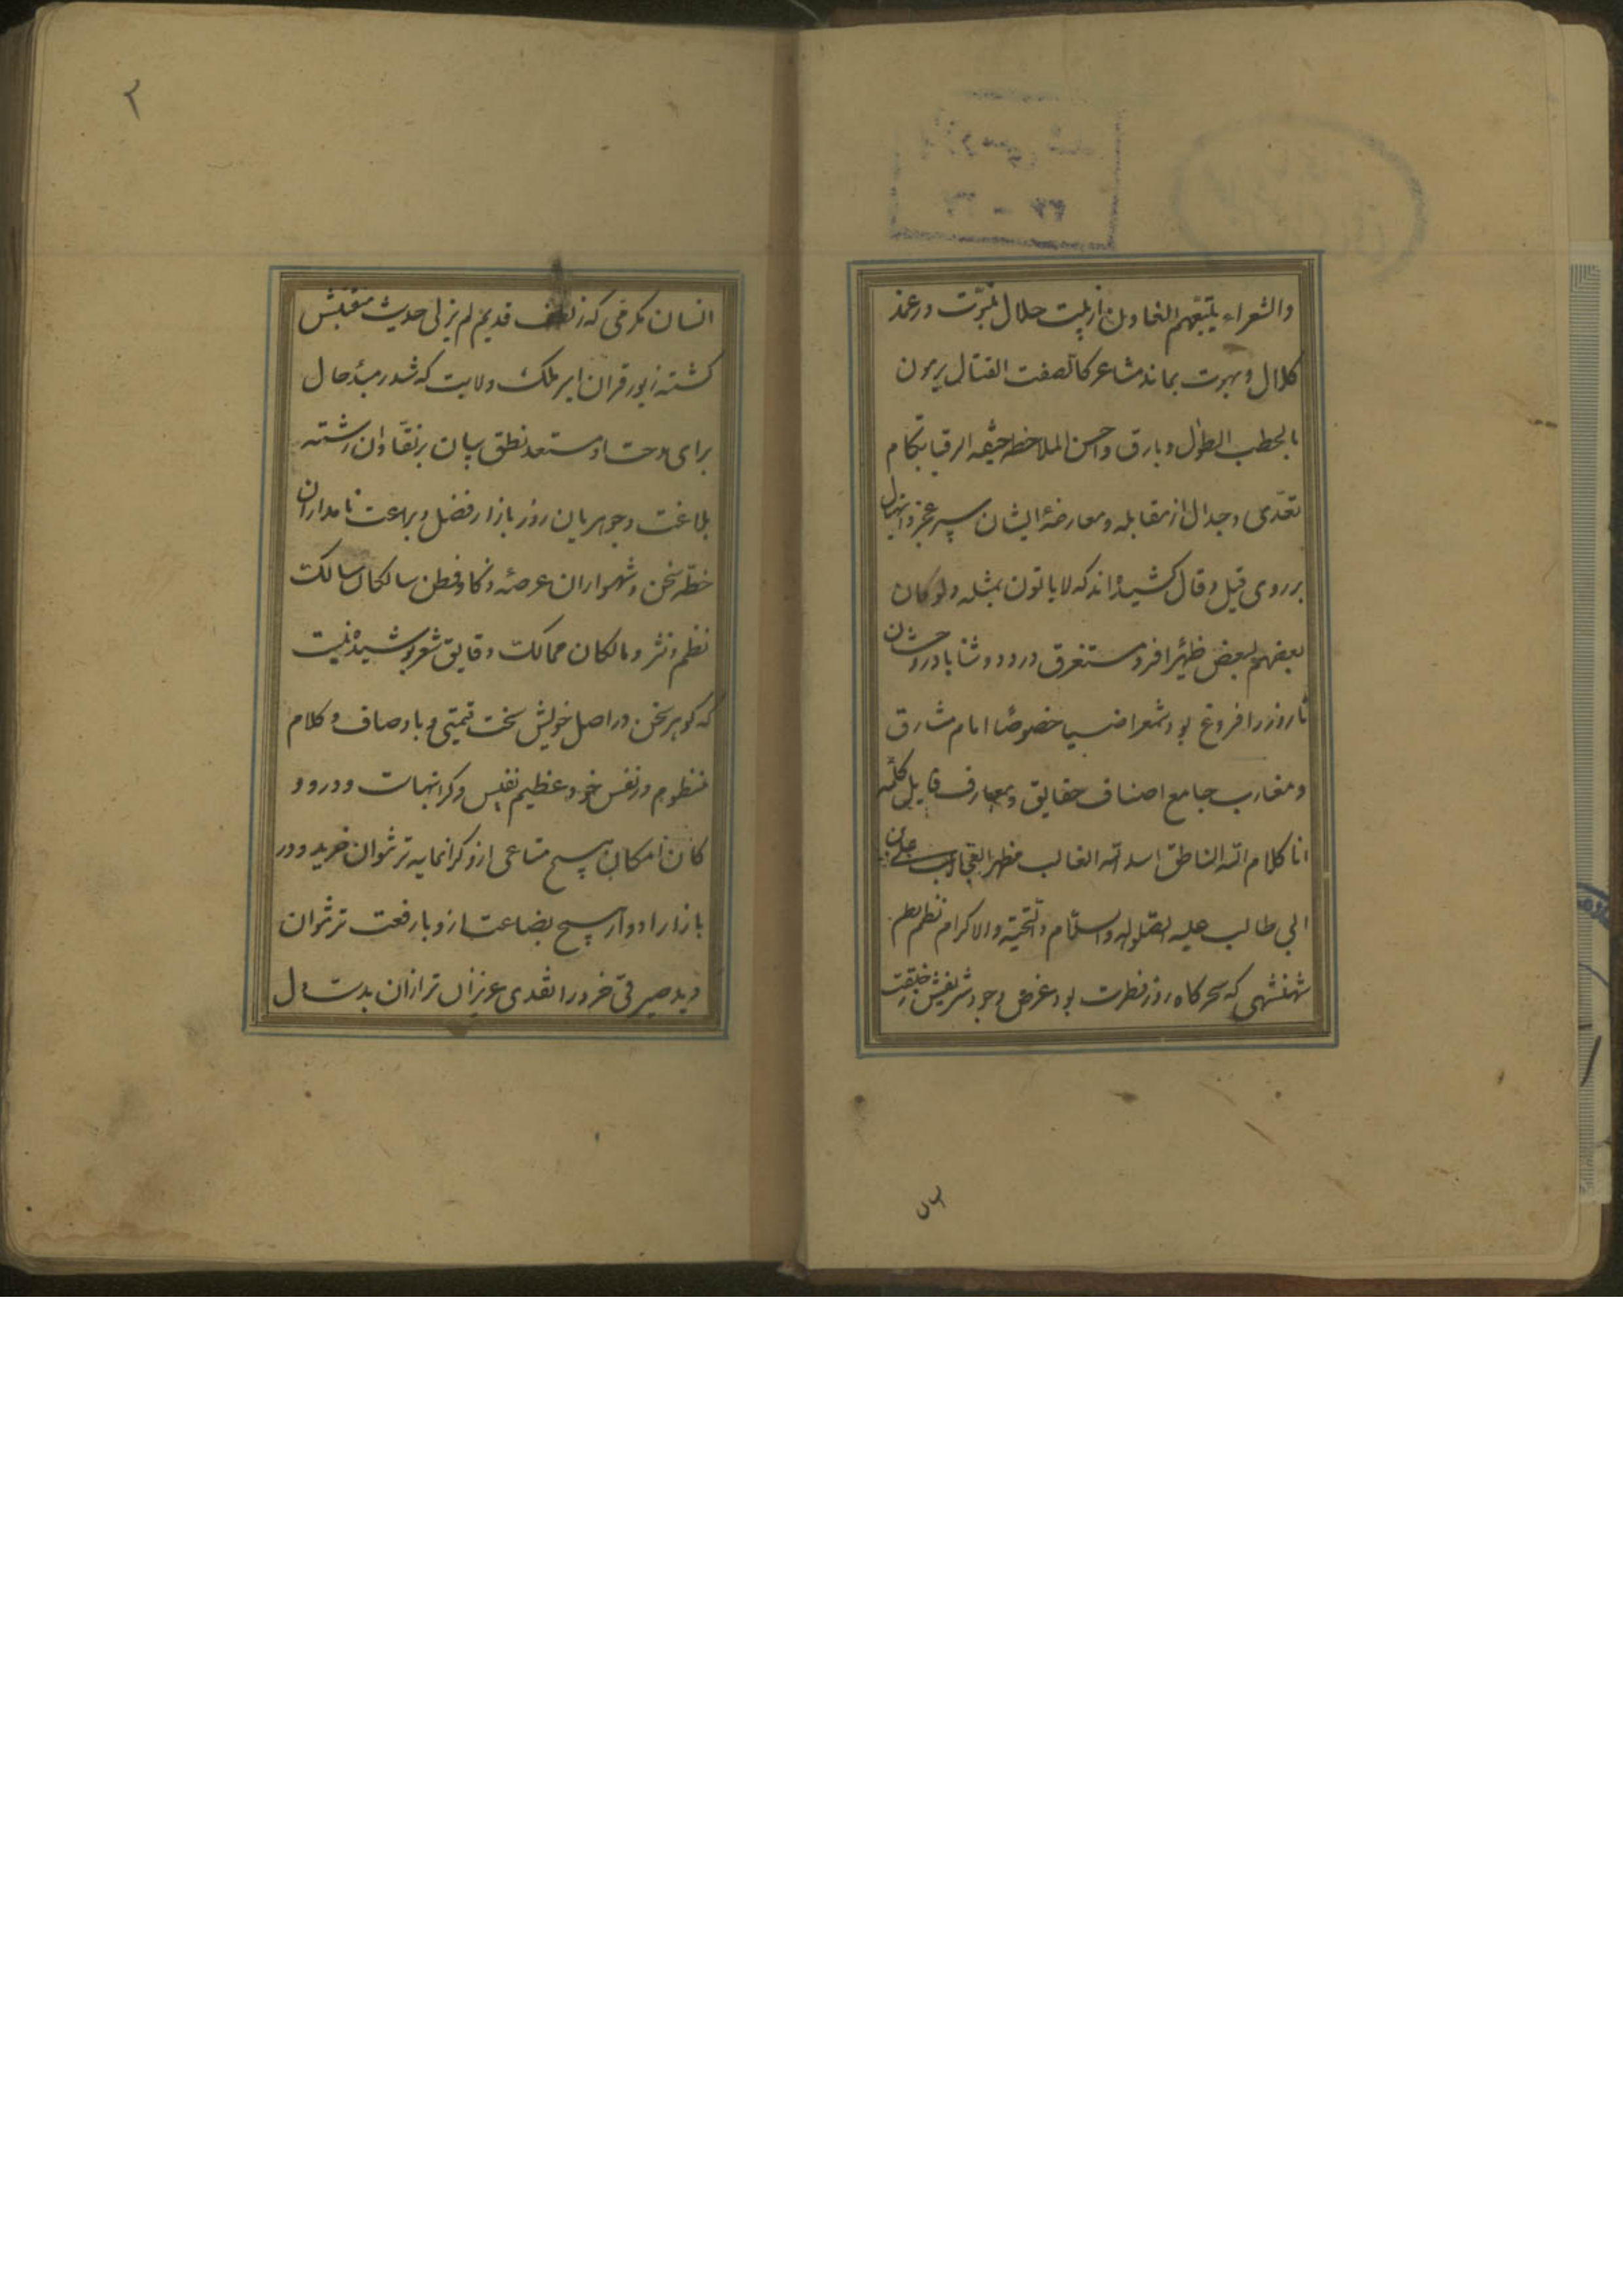 والشعراء یتبعهم الغاون از هیبت جلال نبوت در عقد
کلال و بهرت بماند مشاعر کالصفت القتال یرمون
بالخطب الطوال و بارق وحسن الملاحظه خیفه الرقبا بکام
تعدی و جدال از مقابله و معارضهٔ ایشان سپر عجز و ابتهال
بر روی قیل و قال کشیده‌اند که لا یاتون بمثله ولو کان
بعضهم لبعض ظهیرا فرو مستغرق درود و ثنا باد روحشان
تا روز را فروغ بود شمع را ضیا خصوصا امام مشارق
و مغارب جامع اصناف حقایق و معارف قایل کلمه
انا کلام الله الناطق اسد الله الغالب مظهر العجایب علی بن
ابی طالب علیه الصلوة والسلام والتحیة والاکرام نظم
شهنشهی که سحرکاه روز فطرت بود غرض وجود شریفش ز خلقت
۲
انسان مکرمی که ز قدیم لم یزلی حدیث منقبتش
کشته زیور قران امیر ملک ولایت که شد ز مبدٔ حال
برای مدحت او مستعد نطق بیان بر نقادان رشته
بلاغت و جوهریان روز بازار فضل و براعت نامداران
خطهٔ سخن و شهسواران عرصهٔ ذکا و فطن سالکان مسالک
نظم و نثر و مالکان ممالک دقایق شعر پوشیده نیست
که کوهر سخن در اصل خویش سخت قیمتی و با وصاف و کلام
منظوم در نفس خود عظیم نفیس و کرانبهاست و در دو
کان امکان هیچ متاعی ازو کرانمایه تر نتوان خرید و در
بازار ادوار هیچ بضاعت ازو با رفعت تر نتوان
دید صیرفی خرد را نقدی عزیزان تر ازان بدست دل